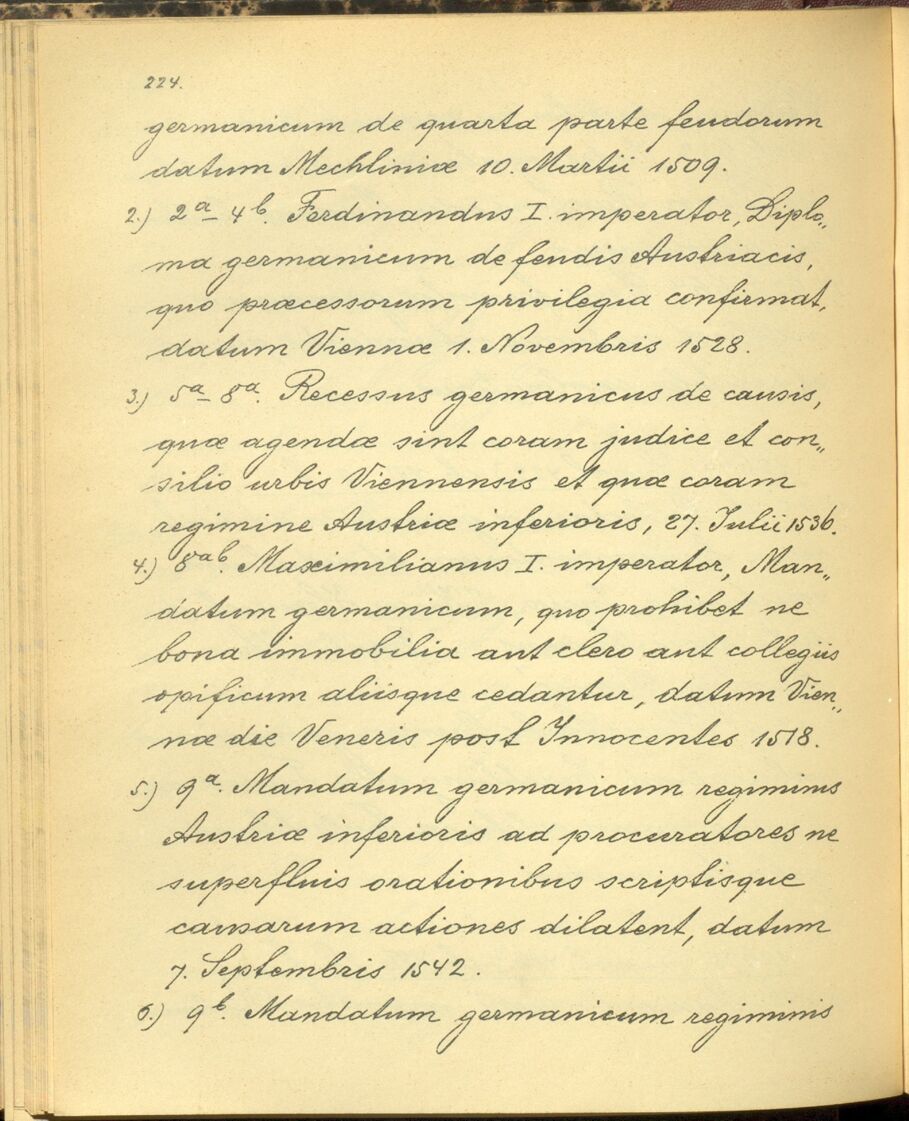 224.
germanicum de quarta parte feudorum
datum Mechliniæ 10. Martii 1509.
2.) 2a–4b. Ferdinandus I. imperator, Diplo„
ma germanicum de feudis Austriacis,
quo præcessorum privilegia confirmat,
datum Viennæ 1. Novembris 1528.
3.) 5a–8a. Recessus germanicus de causis,
quæ agendæ sint coram judice et con„
silio urbis Viennensis et quæ coram
regimine Austriæ inferioris, 27. Julii 1536.
4.) 8ab. Maximilianus I. imperator, Man„
datum germanicum, quo prohibet ne
bona immobilia aut clero aut collegiis
opificum aliisque cedantur, datum Vien„
næ die Veneris post Innocentes 1518.
5.) 9a. Mandatum germanicum regiminis
Austriæ inferioris ad procuratores ne
superfluis orationibus scriptisque
causarum actiones dilatent, datum
7. Septembris 1542.
6.) 9b. Mandatum germanicum regiminis